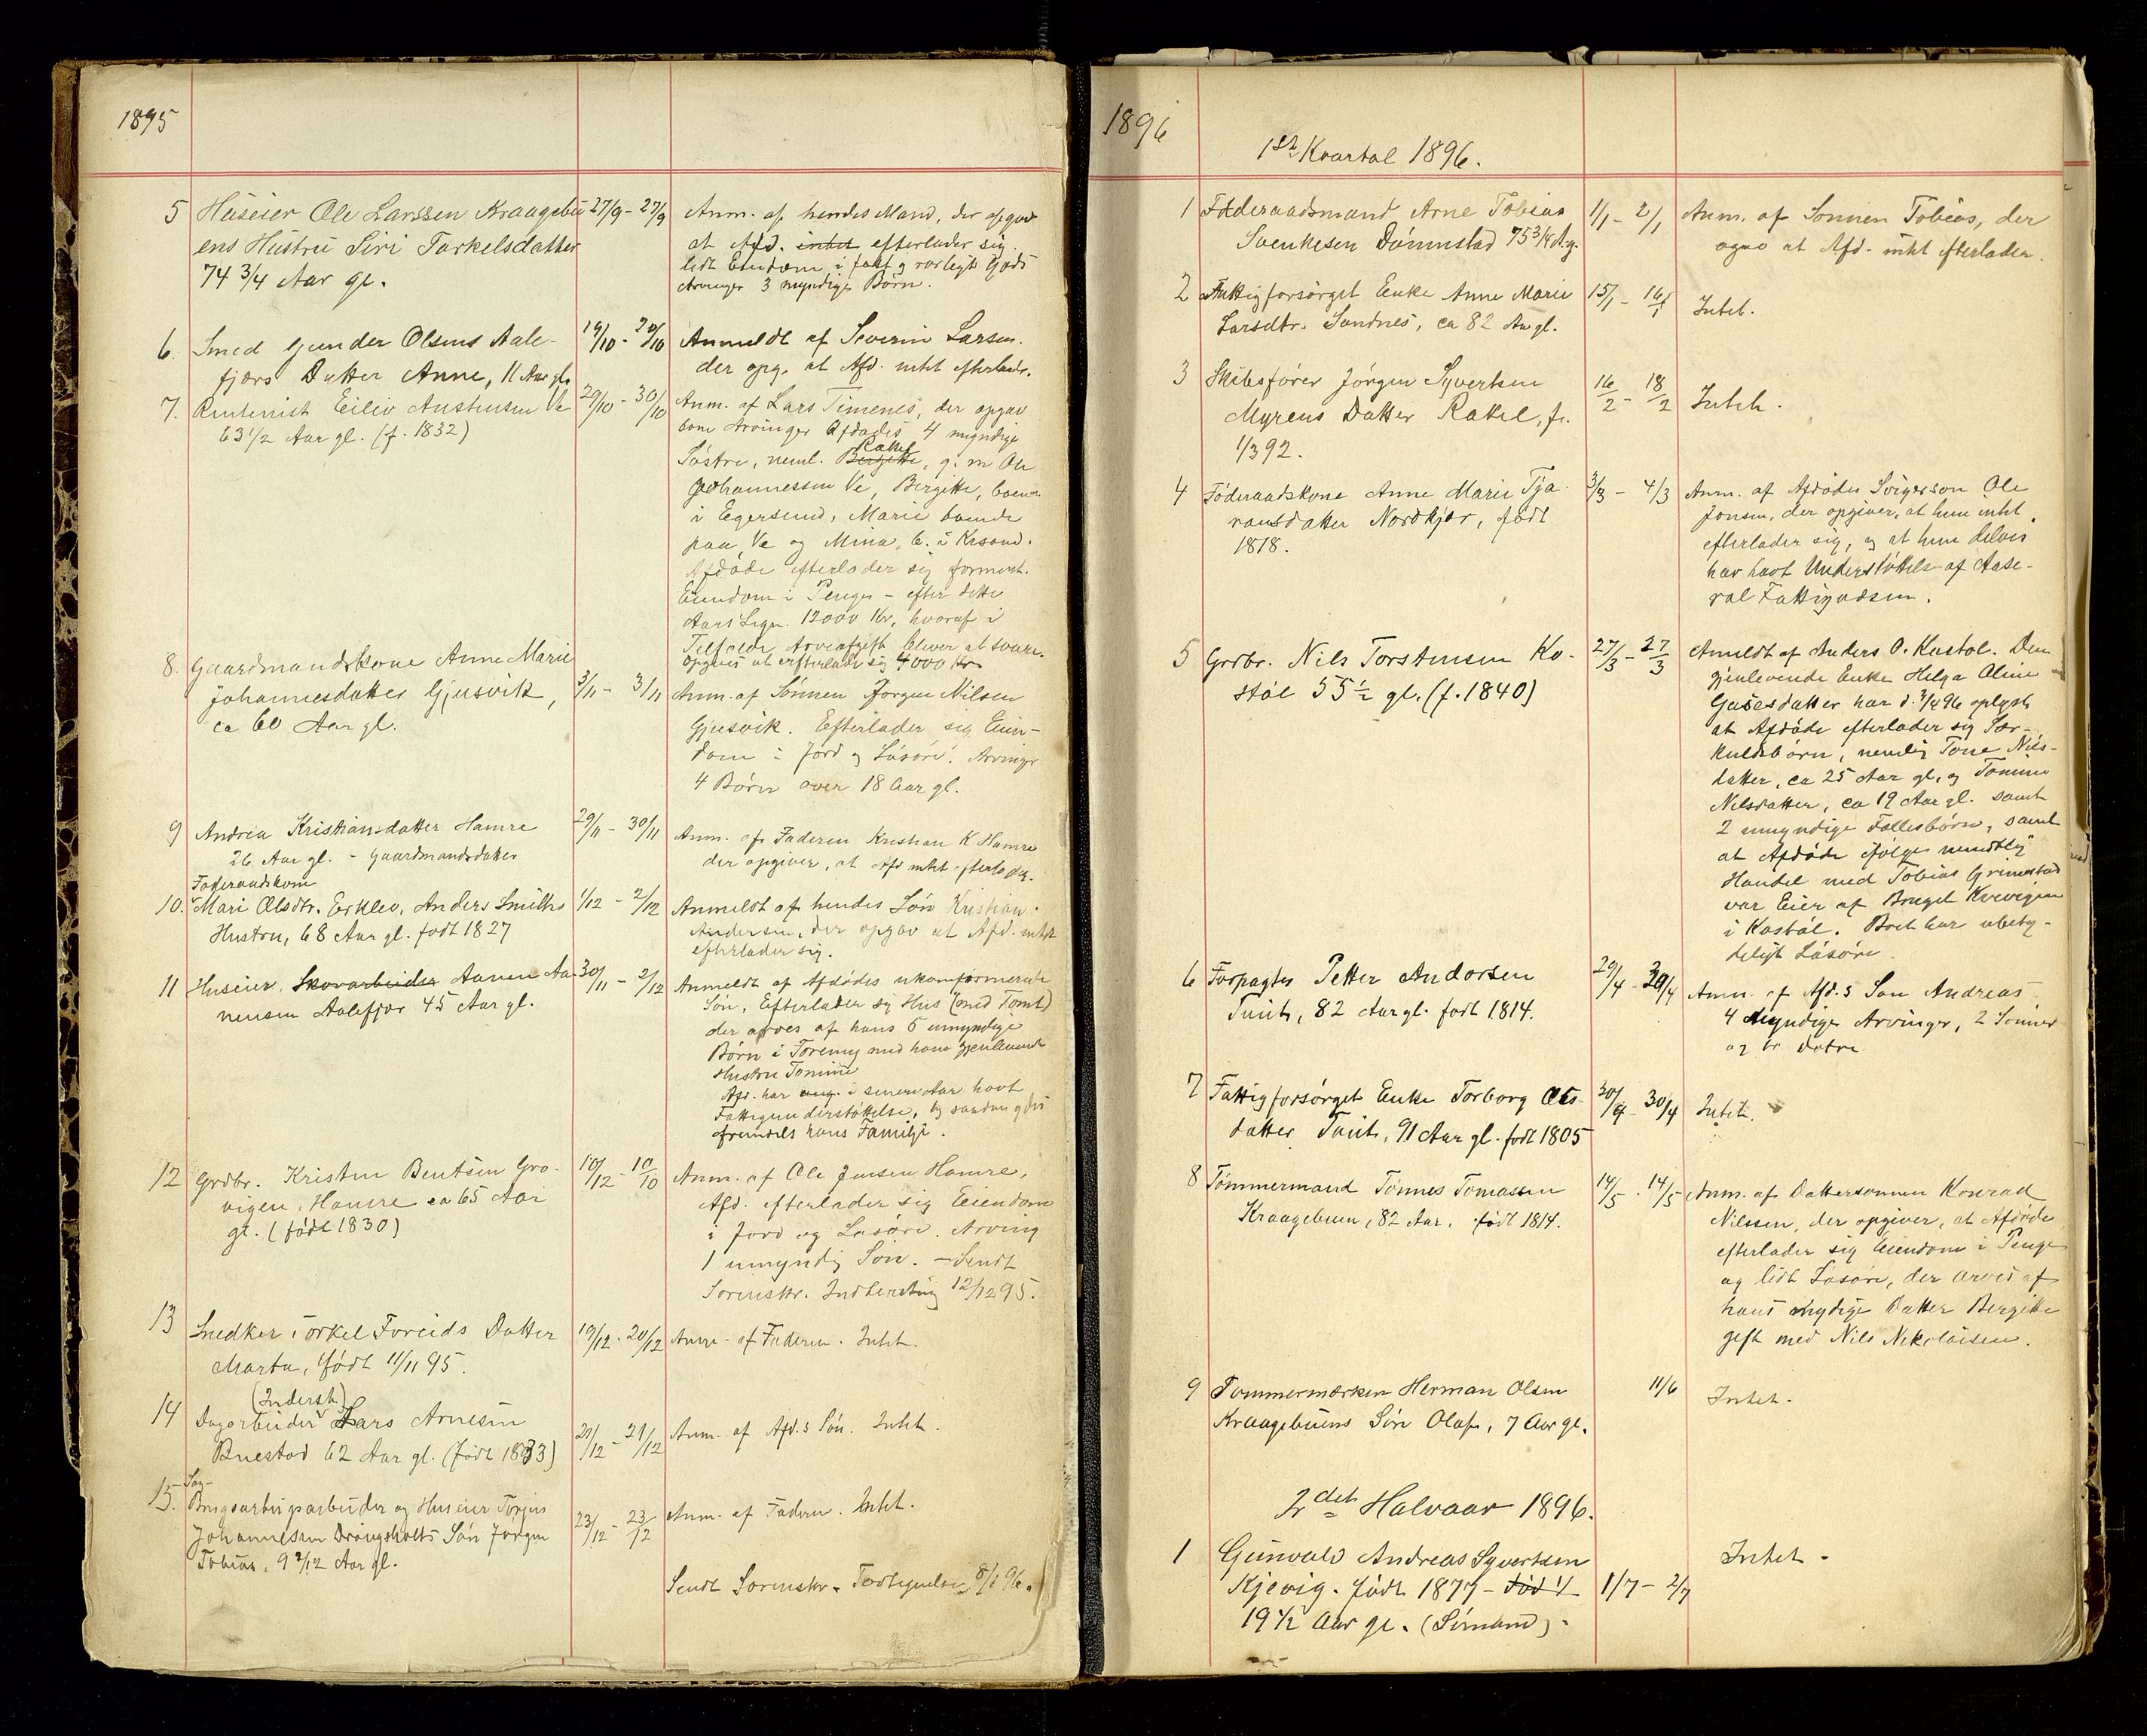 1895
5 Huseier Ole Larssen Kraagebu 27/9 - 27/9
ens Hustru Siri Tarkelsdatter
74 3/4 Aar gl.
Anm. af hendes Mand, der opgav
at Afd. intet efterlader sig
lidt Eiendom i fast og rørligt Gods
Arvinger 3 myndige Børn.
6. Smed Gunder Olsens Aale- 19/10 - 20/10
fjærs Datter Anne, 11 Aar gl.
Anmeldt af Severin Larsen.
der opg. at Afd. intet efterlader.
7. Rentenist Eiliv Austensen Ve 29/10 - 30/10
63 1/2 Aar gl. (f. 1832)
Anm. af Lars Timenes, der opgav
som Arvinger Afdødes 4 myndige
Rakel
Søstre, neml. Bergitte, g. m Ole
Johannessen Ve, Bergitte, boende
i Egersund, Marie boende
paa Ve og Mina, b. i Krsand.
Afdøde efterlader sig forment.
Eiendom i Penge - efter dette
Aars Lign. 12000 Kr, hvoraf i
Tilfælde Arveafgift bliver at svare.
opgives at efterlade sig 4000 Kr.
8. Gaardmandskone Anne Marie
Johannesdatter Gjusvik, 3/11 - 3/11
ca 60 Aar gl.
Anm. af Sønnen Jørgen Nilsen
Gjusvik. Efterlader sig Eien-
dom i Jord og Løsøre. Arvinger
4 Børn over 18 Aar gl.
9 Andrea Kristiansdatter Hamre 29/11 - 30/11
26 Aar gl. - Gaardmandsdatter
Anm. af Faderen Kristian K Hamre
der opgiver, at Afd intet efterlader.
Føderaadskone
10. Mari Olsdtr. Erklev, Anders Smiths 1/12 - 2/12
Hustru, 68 Aar gl. født 1827
Anmeldt af hendes Søn Kristian
Andersen, der opgav at Afd. intet
efterlader sig.
11 Huseier, Skovarbeider Aanen Aa- 30/11 - 2/12
nensen Aalefjær 45 Aar gl.
Anmeldt af Afdødes ukonfirmerede
Søn. Efterlader sig Hus (med Tomt)
der arves af hans 5 umyndige
Børn i Forening med hans gjenlevende
Hustru Tomine
Afd. har i senere Aar havt
Fattigunderstøttelse, og saadan ydes
fremdels hans Familje.
12 Grdbr. Kristen Bentsen Gro- 10/12 - 10/10
vigen, Hamre ca 65 Aar
gl. (født 1830)
Anm. af Ole Jensen Hamre,
Afd. efterlader sig Eiendom
i Jord og Løsøre. Arving
1 umyndig Søn. - Sendt
Sorenskr. Indberetning 12/12 95.
13 Snedker Torkel Foreids Datter 19/12 - 20/12
Marta, født 11/11 95.
Anm. af Faderen. Intet.
(Inderst)
14 Dagarbeider Lars Arnesen
Buestad 62 Aar gl. (født 1833) 20/12 - 21/12
Anm. af Afd.s Søn. Intet.
Sag-
15. Brugsarbeider og Huseier Torjus
Johannesen Drangsholts Søn Jørgen 23/12 - 23/12
Tobias, 9 2/12 Aar gl.
Anm. af Faderen. Intet.
Sendt Sorenskr. Fortegnelse 8/1 96.
1896
1ste Kvartal 1896.
1 Føderaadsmand Arne Tobias 1/1 - 2/1
Svenkesen Dønnestad 75 3/4 A.g.
Anm. af Sønnen Tobias, der
opgav at Afd. intet efterlader.
2 Fattigforsørget Enke Anne Marie 15/1 - 16/1
Larsdtr. Sandnes, ca 82 Aar gl.
Intet.
3 Skibsfører Jørgen Syvertsen 16/2 - 18/2
Myrens Datter Rakel, f.
1/3 92.
Intet.
4 Føderaadskone Anne Marie Tja- 3/3 - 4/3
ransdatter Nordkjær, født
1818.
Anm. af Afdødes Svigersøn Ole
Jensen, der opgiver, at hun intet
efterlader sig, og at hun delvis
har havt Understøttelse af Aase-
ral Fattigvæsen.
5 Grdbr. Nils Torstensen Ko- 27/3 - 27/3
støl 55 1/2 gl. (f. 1840)
Anmeldt af Anders O. Kostøl. Den
gjenlevende Enke Helga Oline
datter har d. 3/4 96 oplyst,
at Afdøde efterlader sig Sær-
kuldsbørn, nemlig Tone Nils-
datter, ca 25 Aar gl, og Tomine
Nilsdatter, ca 19 Aar gl. samt
2 umyndige Fællesbørn, samt
at Afdøde ifølge mundtlig
Handel med Tobias Grimestad
var Eier af Bruget Kvevigen
i Kostøl. Boet har ubety-
deligt Løsøre.
6 Forpagter Petter Andorsen 29/4 - 30/4
Tveit, 82 Aar gl. født 1814.
Anm. af Afd.s Søn Andreas
4 Myndige Arvinger, 2 Sønner
og to døtre
7 Fattigforsørget Enke Torborg Ols- 30/4 - 30/4
datter Tveit, 91 Aar gl. født 1805
Intet.
8 Tømmermand Tønnes Tomassen 14/5 - 14/5
Kraagebuen, 82 Aar, født 1814.
Anm. af Dattersønnen Konrad
Nilssen, der opgiver, at Afdøde
efterlader sig Eiendom i Penge
og lidt Løsøre, der arves af
hans Mydige Datter Bergitte
gift med Nils Nikolaisen.
9 Tømmermærker Herman Olsen 11/6
Kraagebuens Søn Olaf, 7 Aar gl.
Intet.
2det Halvaar 1896.
1 Gunvald Andreas Syvertsen
Kjevig. født 1877 - død 1/ 1/7 - 2/7
19 1/2 Aar gl. (Sømand).
Intet -